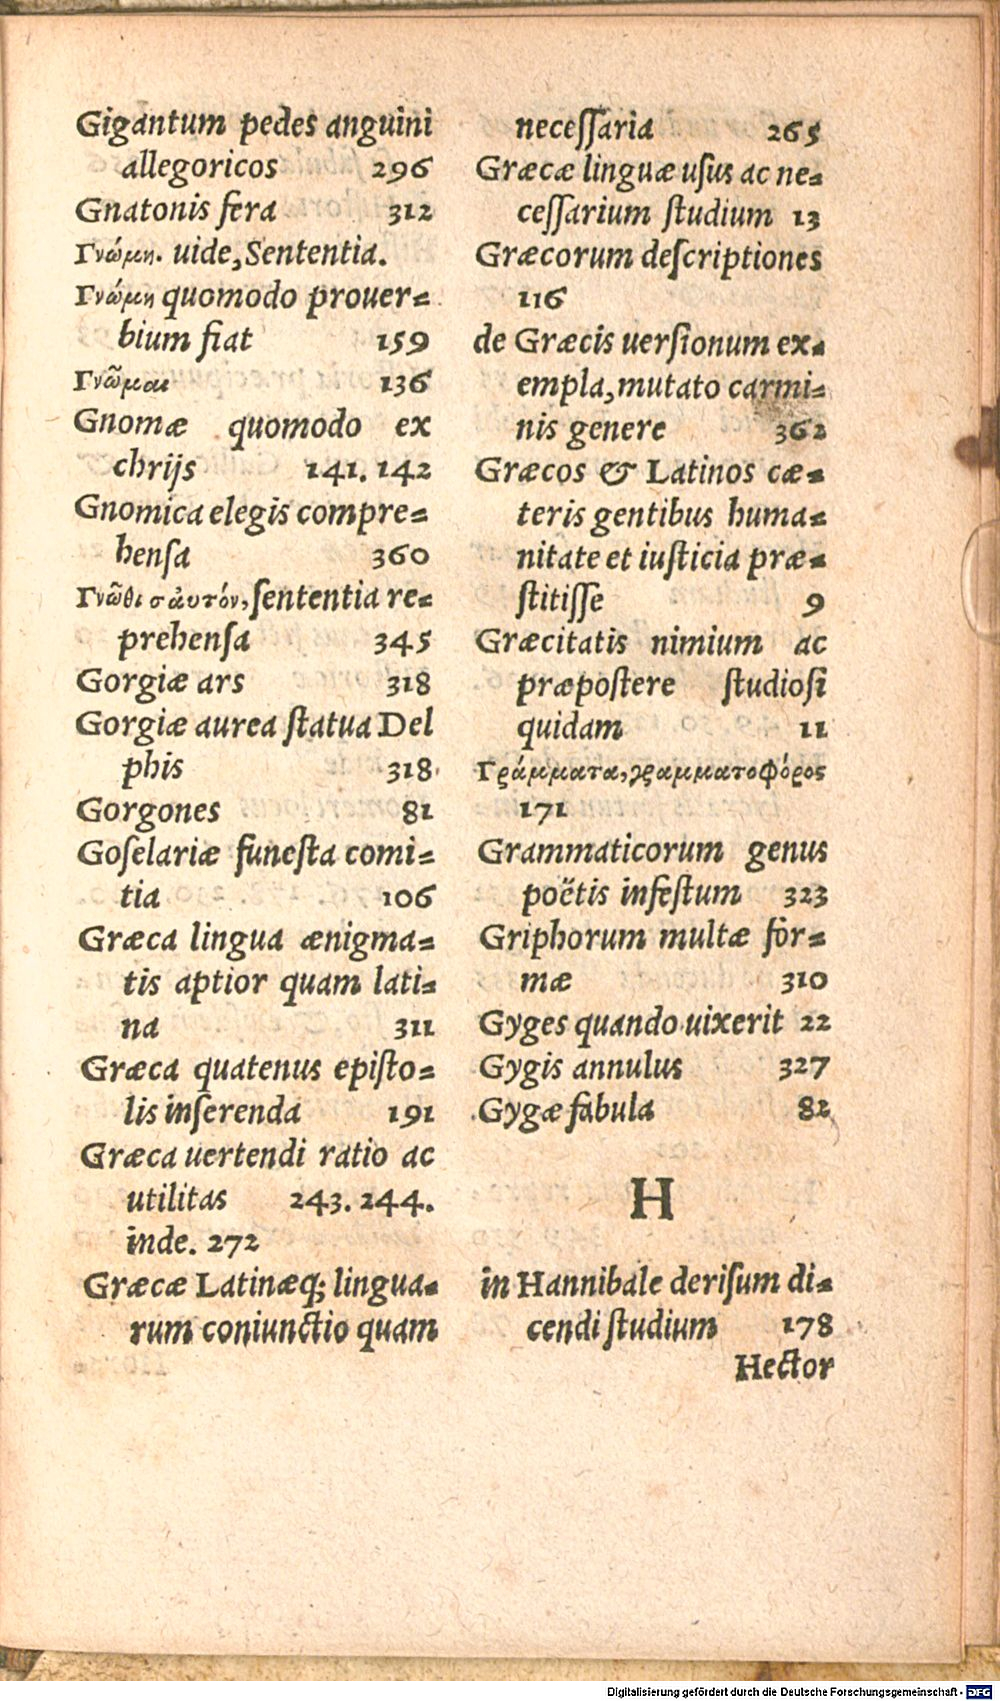 Gigantum pedes anguini
allegoricos 296
Gnatonis fera 312
Γνώμη. uide, Sententia.
Γνώμη quomodo prouer-
bium fiat 159
Γνῶμαι 136
Gnomæ quomodo ex
chrijs 141. 142
Gnomica elegis compre-
hensa 360
Γνῶθι σαυτόν, sententia re-
prehensa 345
Gorgiæ ars 318
Gorgiæ aurea statua Del
phis 318
Gorgones 81
Goselariæ funesta comi-
tia 106
Græca lingua ænigma-
tis aptior quam lati-
na 311
Græca quatenus episto-
lis inserenda 191
Græca uertendi ratio ac
utilitas 243. 244.
inde. 272
Græcæ Latinæq; lingua-
rum coniunctio quam
necessaria 265
Græcæ linguæ usus ac ne-
cessarium studium 13
Græcorum descriptiones
116
de Græcis uersionum ex-
empla, mutato carmi-
nis genere 362
Græcos & Latinos cæ-
teris gentibus huma-
nitate et iusticia præ-
stitisse 9
Græcitatis nimium ac
præpostere studiosi
quidam 11
Γράμματα, γραμματοφόρος
171
Grammaticorum genus
poëtis infestum 323
Griphorum multæ for-
mæ 310
Gyges quando uixerit 22
Gygis annulus 327
Gygæ fabula 82
H
in Hannibale derisum di-
cendi studium 178
Hector
Digitalisierung gefördert durch die Deutsche Forschungsgemeinschaft - DFG